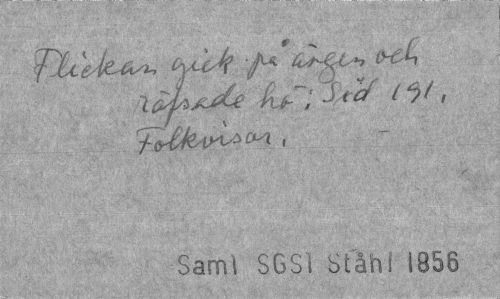 Flickan gick på ängen och
räfsade hö; Sid 191.
Folkvisor.
Saml SGS1 Ståhl 1856